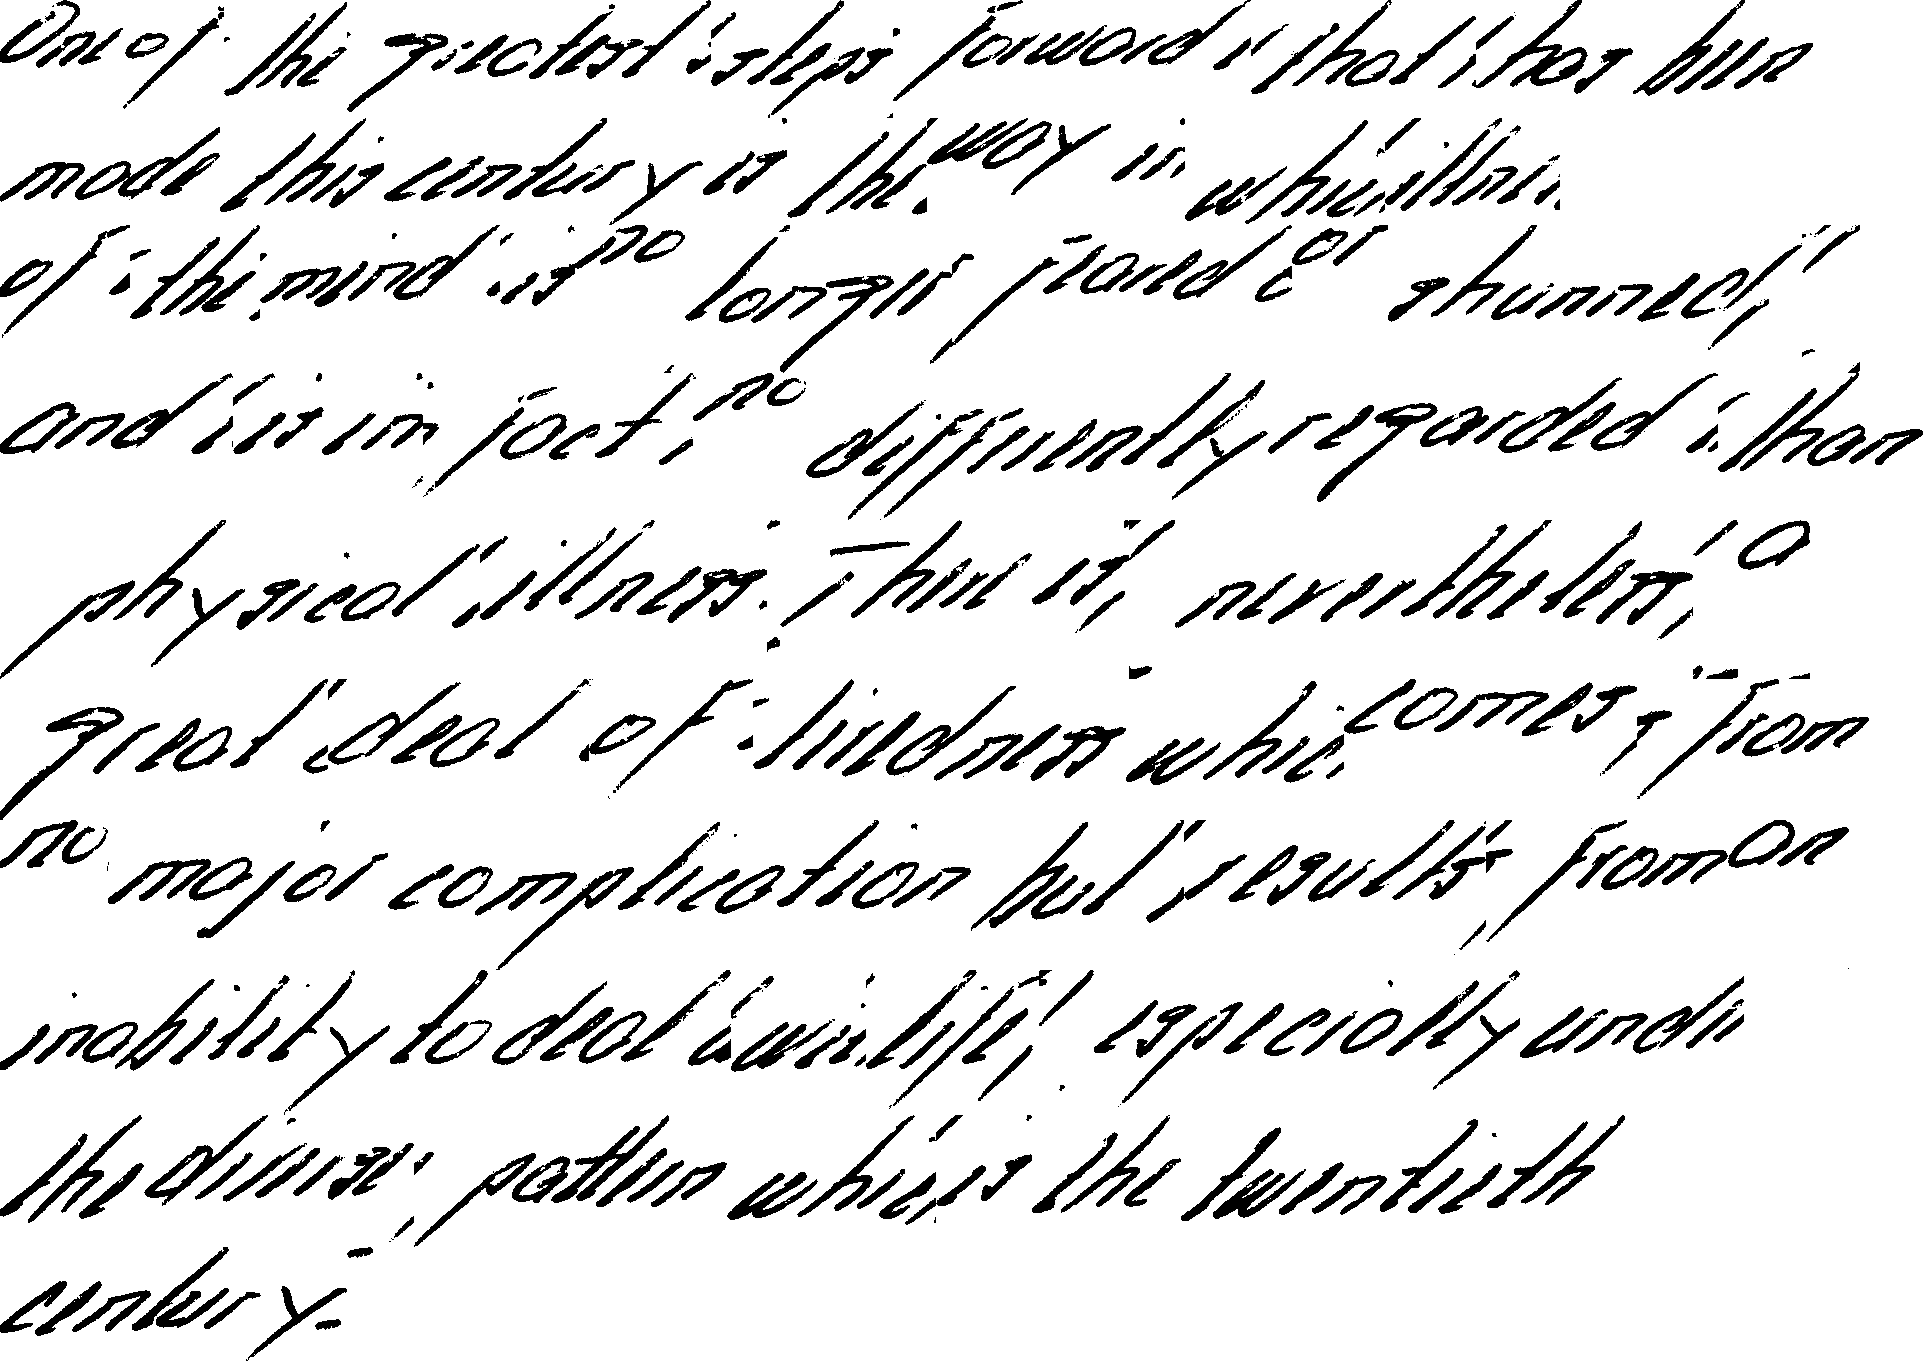 One of the greatest steps forward that has been
made this century is the way in which illness
of the mind is no longer feared or shunned,
and is in fact, no differently regarded than
physical illness. There is, nevertheless, a
great deal of tiredness which comes from
no major complication but results from an
inability to deal with life, especially under
the diverse pattern which is the twentieth
century.